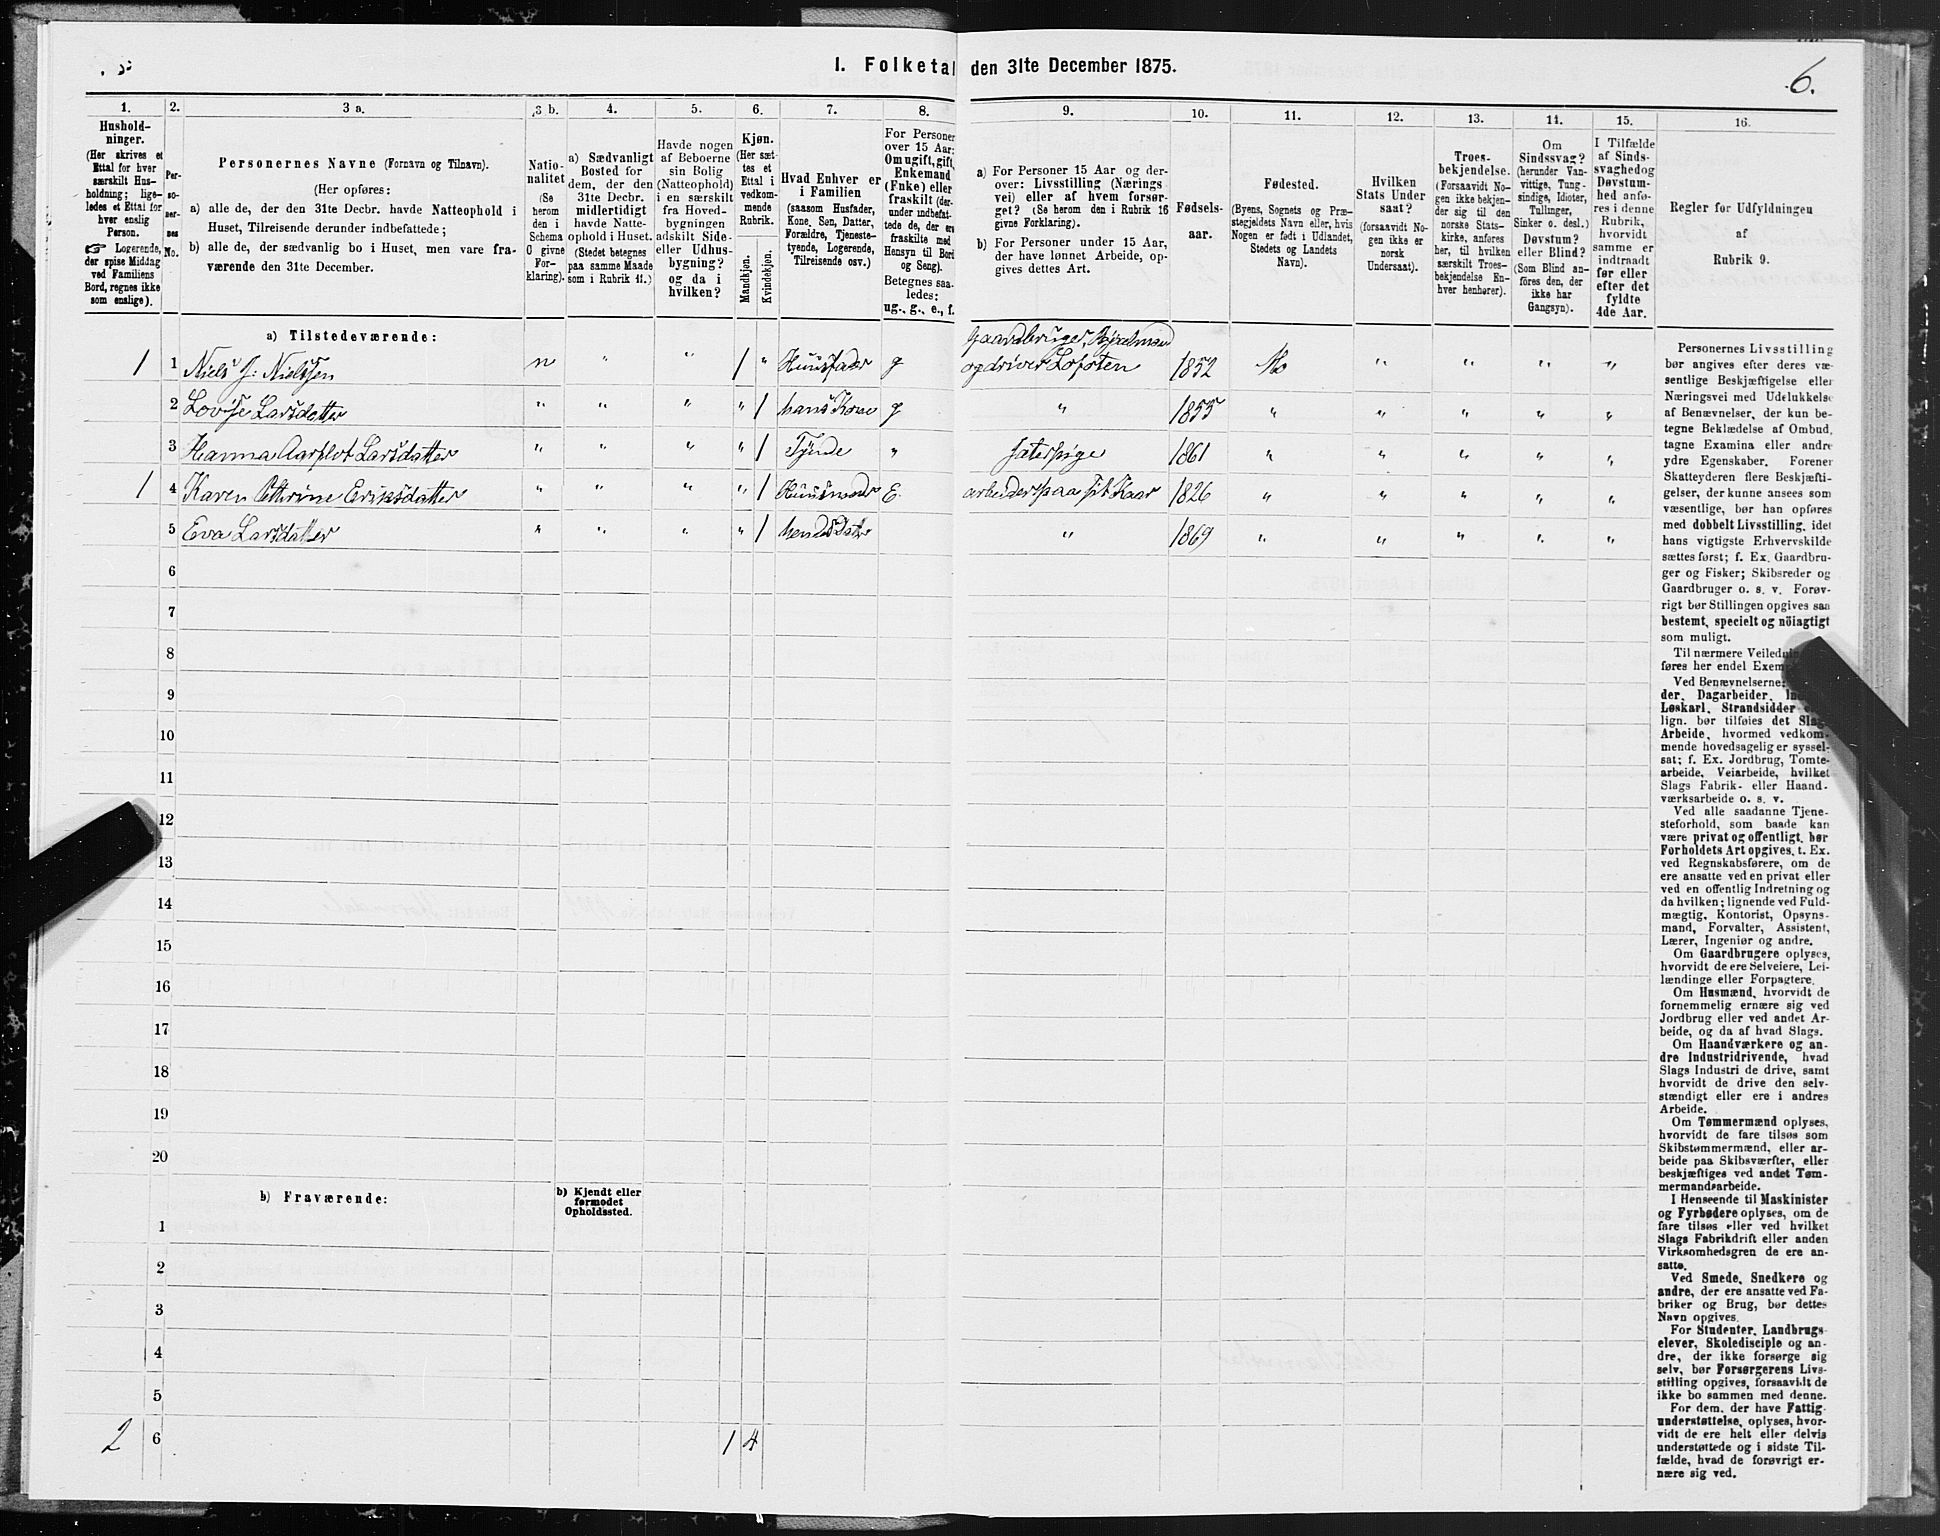 I. Folketal den 31te December 1875.
6.
1. 2. 3 a. 3 b. 4. 5. 6. 7. 8. 9. 10. 11. 12. 13. 14. 15. 16.
Hushold-
ninger.
(Her skrives et
Ettal for hver
særskilt Hus-
holdning; lige-
ledes et Ettal for
hver enslig
Person.
☞ Logerende,
der spise Middag
ved Familiens
Bord, regnes ikke
som enslige).
Per-
so-
ner-
nes
No.
Personernes Navne (Fornavn og Tilnavn).
(Her opføres:
a) alle de, der den 31te Decbr. havde Natteophold i
Huset, Tilreisende derunder indbefattede;
b) alle de, der sædvanlig bo i Huset, men vare fra-
værende den 31te December.
Natio-
nalitet
(Se
herom
den i
Schema
6 givne
For-
klaring).
a) Sædvanligt
Bosted for
dem, der den
31te Decbr.
midlertidigt
havde Natte-
ophold i Huset.
(Stedet betegnes
paa samme Maade
som i Rubrik 11.)
Havde nogen
af Beboerne
sin Bolig
(Natteophold)
i en særskilt
fra Hoved-
bygningen
adskilt Side-
eller Udhus-
bygning?
og da i
hvilken?
Kjøn.
(Her sæt-
tes et
Ettal i
vedkom-
mende
Rubrik.
Mandkjøn.
Kvindekjøn.
Hvad Enhver er
i Familien
(saasom Husfader,
Kone, Søn, Datter,
Forældre, Tjeneste-
tyende, Logerende,
Tilreisende osv.)
For Personer
over 15 Aar:
Om ugift, gift,
Enkemand
(Enke) eller
fraskilt (der-
under indbefat-
tede de, der ere
fraskilte med
Hensyn til Bord
og Seng).
Betegnes saa-
ledes:
ug., g., e., f.
a) For Personer 15 Aar og der-
over: Livsstilling (Nærings-
vei) eller af hvem forsør-
get? (Se herom den i Rubrik 16
givne Forklaring).
b) For Personer under 15 Aar,
der have lønnet Arbeide, op-
gives dettes Art.
Fødsels-
aar.
Fødested.
(Byens, Sognets og Præ-
stegjeldets Navn eller, hvis
Nogen er født i Udlandet,
Stedets og Landets
Navn).
Hvilken
Stats Under-
saat?
(forsaavidt No-
gen ikke er
norsk
Undersaat).
Troes-
bekjendelse.
(Forsaavidt No-
gen ikke bekjen-
der sig til den
norske Stats-
kirke, anføres
her, til hvilken
særskilt Troes-
bekjendelse En-
hver henhører).
Om
Sindssvag?
(herunder Van-
vittige, Tung-
sindige, Idioter,
Tullinger,
Sinker o. desl.)
Døvstum?
eller Blind?
(Som Blind an-
føres den, der
ikke har
Gangsyn).
I Tilfælde
af Sinds-
svaghed og
Døvstum-
hed anfø-
res i denne
Rubrik,
hvorvidt
samme er
indtraadt
før eller
efter det
fyldte
4de Aar.
Regler for Udfyldningen
af
Rubrik 9.
a) Tilstedeværende:
Gaardbruger,
1 1 Niels J: Nielssen n " " 1 " Huusfader g og driver Lofoten 1852 Mo " " " "
2 Lovise Larsdatter " " " " 1 hans Kone g " 1855 " " " " "
3 Hanna Larsdatter " " " " 1 Tynde " Jæterpige 1861 " " " " "
1 4 Karen Petterine Eriksdatter " " " " 1 Huusmoder E. arbeider paa sit Kaar 1826 " " " " "
5 Eva Larsdatter " " " " 1 hendes Datter " 1869 " " " " "
6
7
8
9
10
11
12
13
14
15
16
17
18
19
20
b) Fraværende:
b) Kjendt eller
formodet
Opholdssted.
1
2
3
4
5
2 6 1 4
Personernes Livsstilling
bør angives efter deres væ-
sentlige Beskjæftigelse eller
Næringsvei med Udelukkelse
af Benævnelser, der kun be-
tegne Beklædelse af Ombud,
tagne Examina eller andre
ydre Egenskaber. Forener
Skatteyderen flere Beskjæfti-
gelser, der kunne ansees som
væsentlige, bør han opføres
med dobbelt Livsstilling, idet
hans vigtigste Erhvervskilde
sættes først; f. Ex. Gaardbru-
ger og Fisker; Skibsreder og
Gaardbruger o. s. v. Forøv-
rigt bør Stillingen opgives saa
bestemt, specielt og nøiagtigt
som muligt.
Til nærmere Veiledning
føres her endel
Ved Benævnelserne:
der, Dagarbeider,
Løskarl, Strandsidder
lign. bør tilføies det Slags
Arbeide, hvormed vedkom-
mende hovedsagelig er syssel-
sat; f. Ex. Jordbrug, Tomte-
arbeide, Veiarbeide, hvilket
Slags Fabrik- eller Haand-
værksarbeide o. s. v.
Ved alle saadanne Tjene-
steforhold, som baade kan
være privat og offentligt, bør
Forholdets Art opgives, t. Ex.
ved Regnskabsførere, om de
ere ansatte ved en privat eller
ved en offentlig Indretning og
da hvilken; lignende ved Fuld-
mægtig, Kontorist, Opsyns-
mand, Forvalter, Assistent,
Lærer, Ingeniør og andre.
Om Gaardbrugere oplyses,
hvorvidt de ere Selveiere, Lei-
lændinge eller Forpagtere.
Om Husmænd, hvorvidt de
fornemmelig ernære sig ved
Jordbrug eller ved andet Ar-
beide, og da af hvad Slags.
Om Haandværkere og an-
dre Industridrivende, hvad
Slags Industri de drive, samt
hvorvidt de drive den selv-
stændigt eller ere i andres
Arbeide.
Om Tømmermænd oplyses,
hvorvidt de fare tilsøs som
Skibstømmermænd, eller ar-
beide paa Skibsværfter, eller
beskjæftiges ved andet Tøm-
mermandsarbeide.
I Henseende til Maskinister
og Fyrbødere oplyses, om de
fare tilsøs eller ved hvilket
Slags Fabrikdrift eller anden
Virksomhedsgren de ere an-
satte.
Ved Smede, Snedkere og
andre, der ere ansatte ved Fa-
briker og Brug, bør dettes
Navn opgives.
For Studenter, Landbrugs-
elever, Skoledisciple og an-
dre, der ikke forsørge sig
selv, bør Forsørgerens Livs-
stilling opgives, forsaavidt de
ikke bo sammen med denne.
For dem, der have Fattig-
understøttelse, oplyses, hvor-
vidt de ere helt eller delvis
understøttede og i sidste Til-
fælde, hvad de forøvrigt er-
nære sig ved.